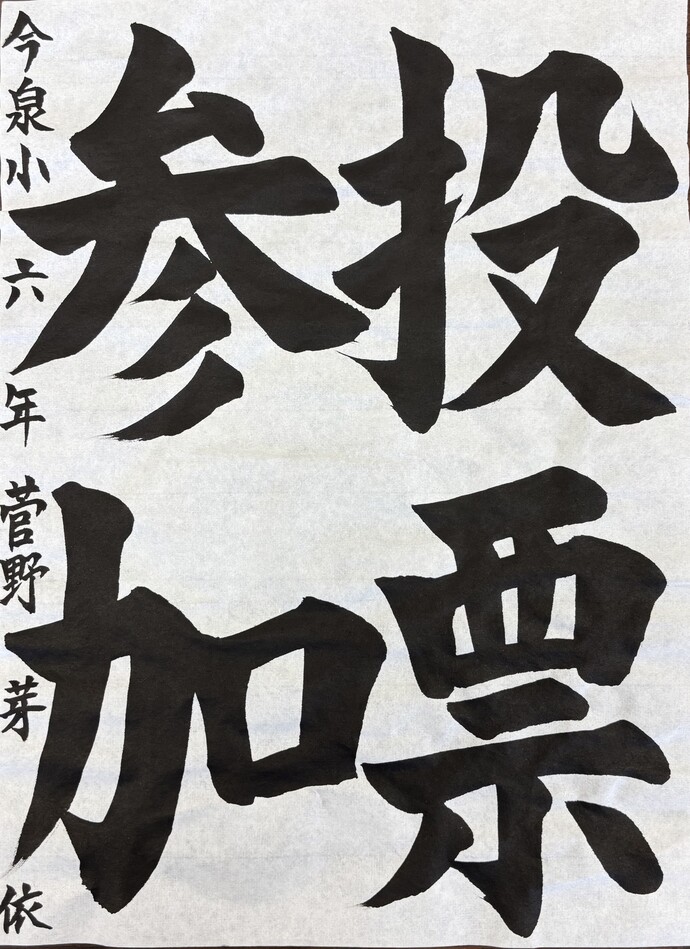 投票
参加
今泉小六年菅野芽依